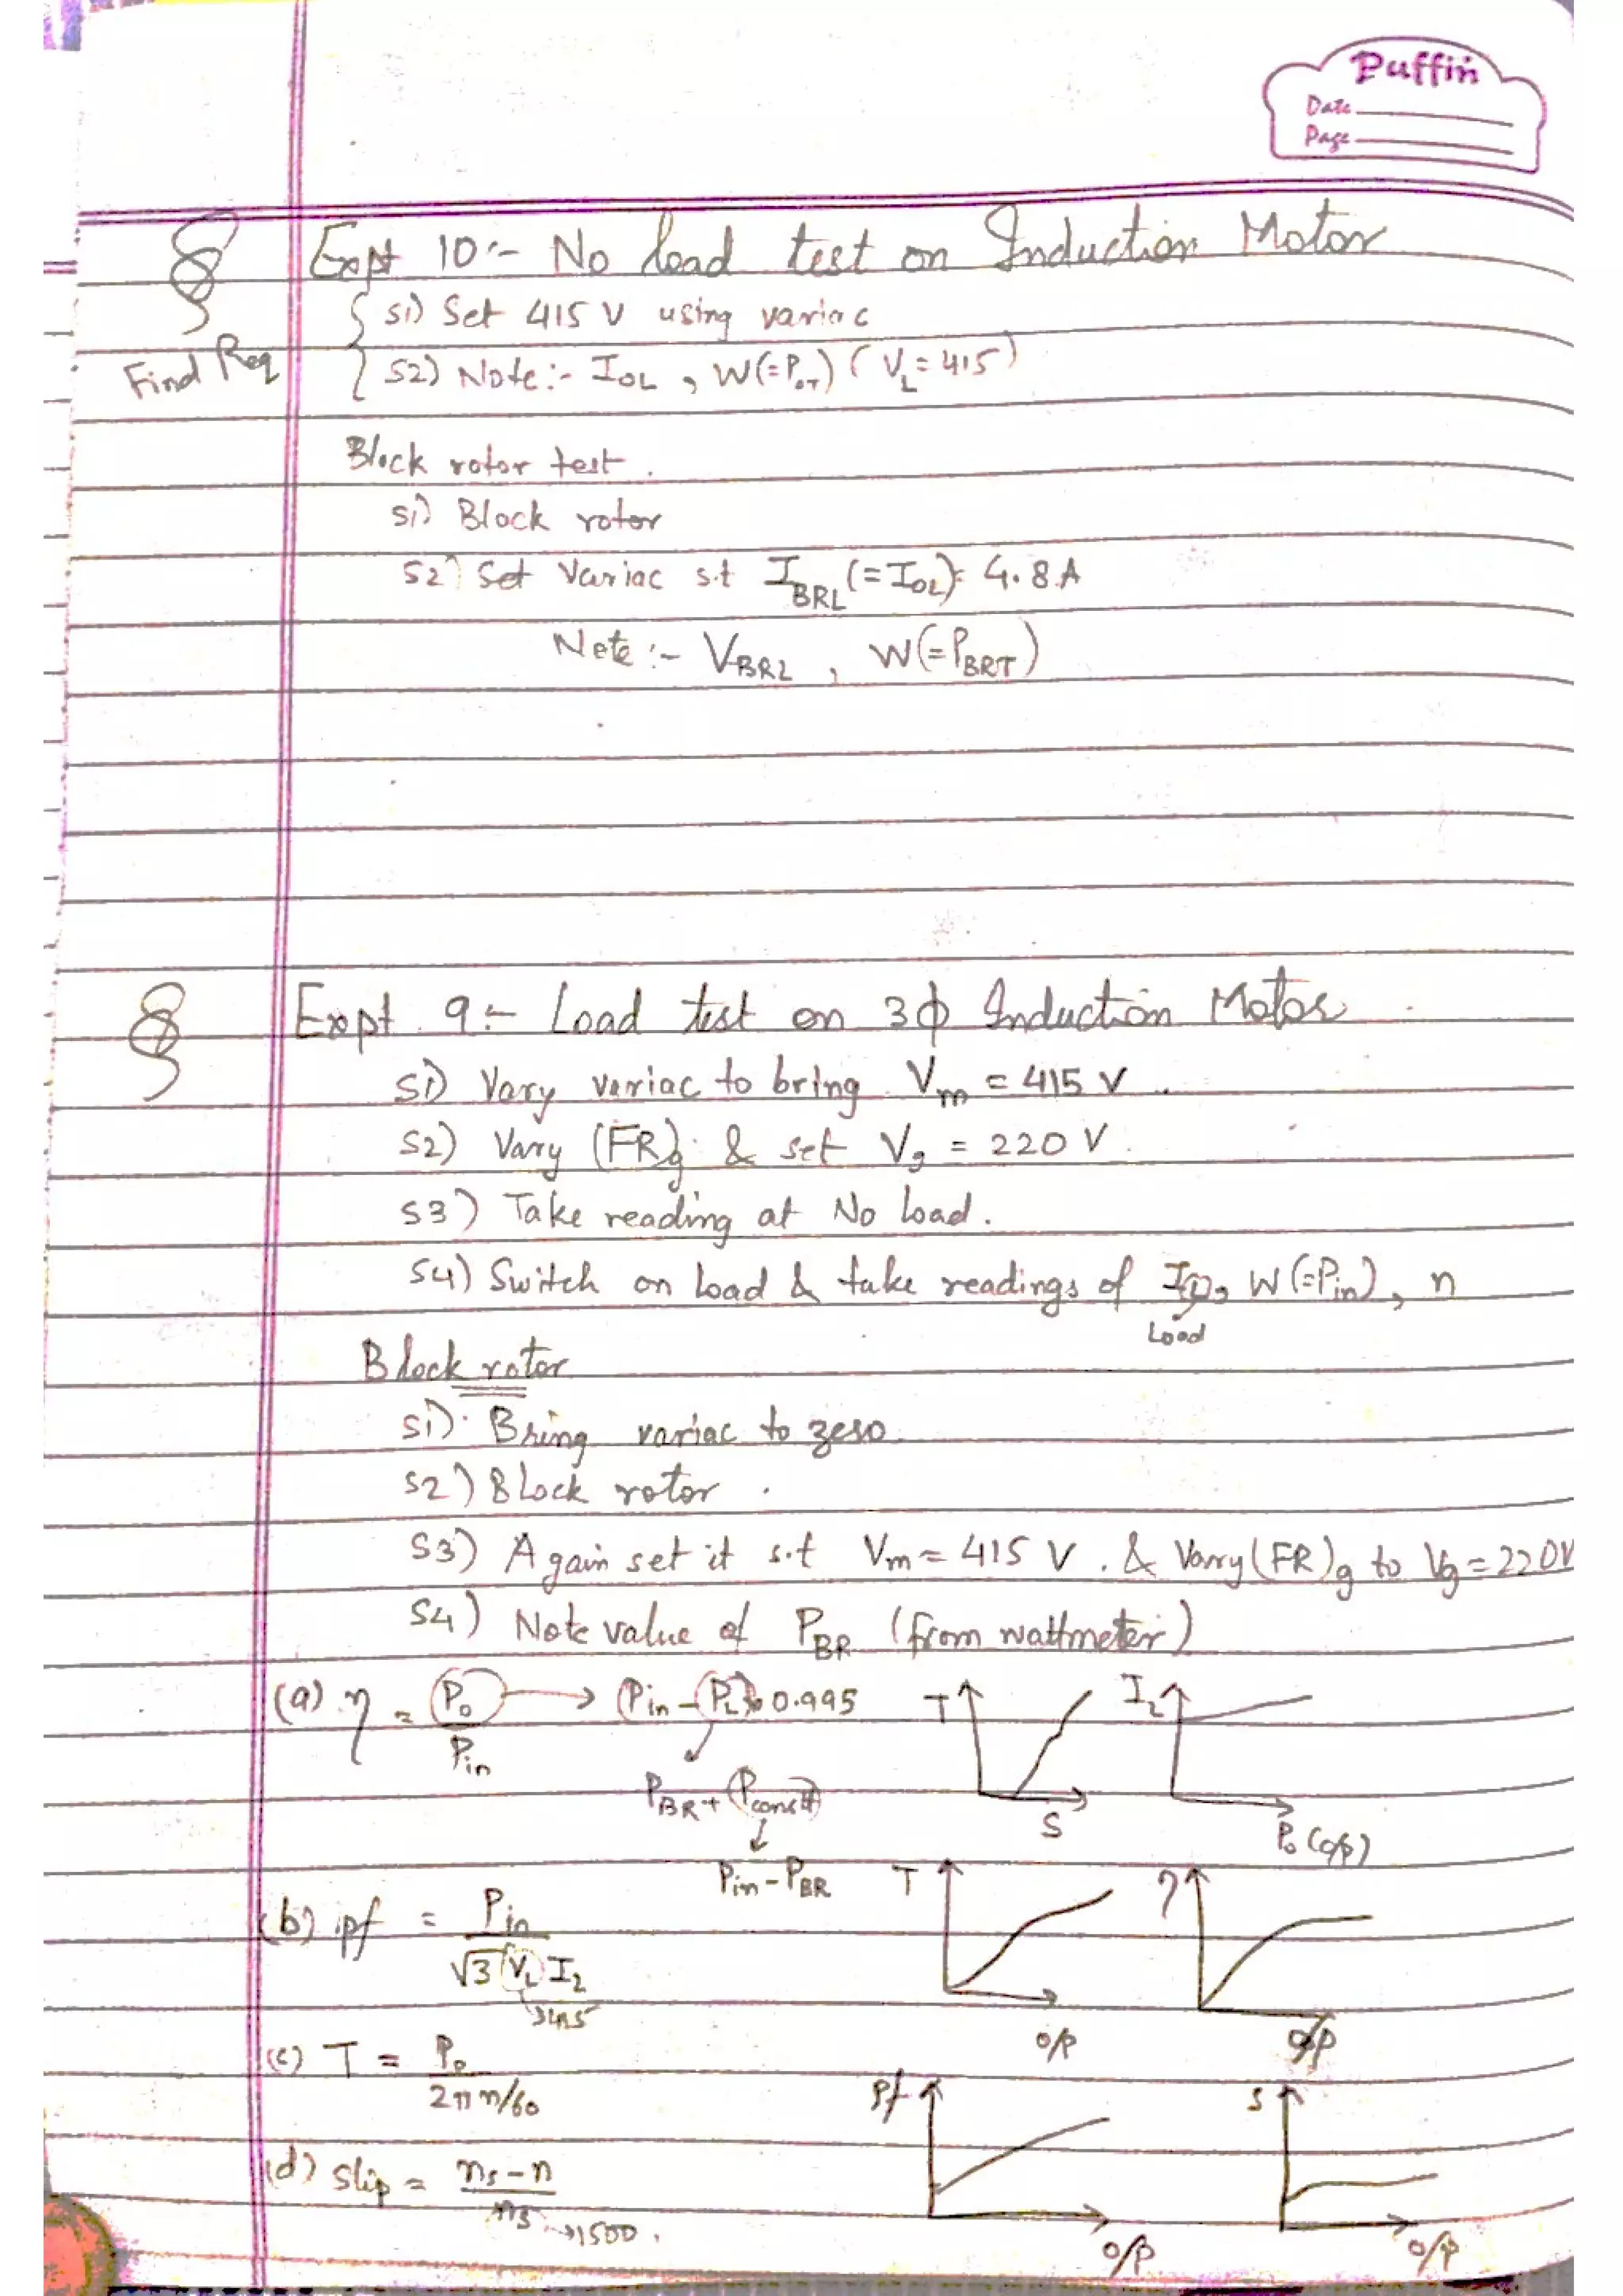 Puffin
Date
Page
Expt 10:- No load test on Induction Motor
S1) Set 415 V using variac
S2) Note:- I_OL , W(=P_OT) ( V_L = 415 )
Find Req
Block rotor test .
S1) Block rotor
S2) Set Variac s.t I_BRL (= I_OL) = 4.8 A
Note :- V_BRL , W(=P_BRT)
Expt 9:- Load test on 3ϕ Induction Motor
S1) Vary variac to bring V_m = 415 V .
S2) Vary (FR)_g & set V_g = 220 V .
S3) Take reading at No load .
S4) Switch on load & take readings of W (=Pin), n
Load
Block rotor
S1) Bring variac to zero
S2) Block rotor .
S3) Again set it s.t V_m = 415 V . & Vary (FR)_g to V_g = 220V
S4) Note value of P_BR (from wattmeter)
(a) η = P_o / P_in → (P_in - P_L) 0.995
P_BR + P_const
↓
P_in - P_BR
T
S
I_L
P_o (o/p)
(b) pf = P_in / √3 V_L I_L
T
O/P
η
O/P
(c) T = P_o / 2πn/60
Pf
O/P
S
O/P
(d) Slip = n_s - n / n_s → 1500 .